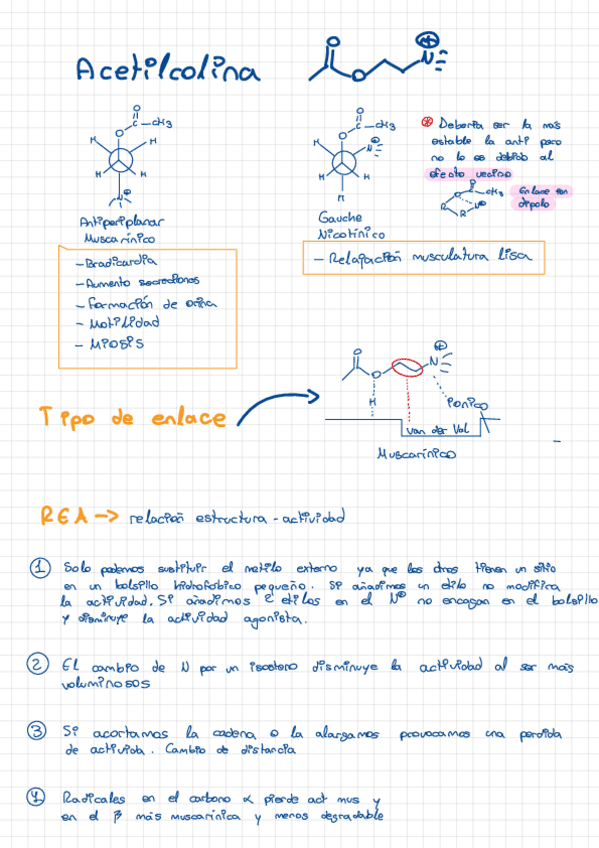 Acetilcolina
O
O
N
⊕
O
C
CH3
O
H
H
H
H
N⊕
Antiperiplanar
Muscarínico
- Bradicardia
- Aumento secreciones
- Formación de orina
- Motilidad
- Miosis
O
C
CH3
O
H
N
⊕
H
H
H
Gauche
Nicotínico
- Relajación musculatura lisa
* Deberia ser la más
estable la anti pero
no lo es debido al
efecto vecino
O
O
CH3
R
R
N⊕
Enlace ion
dipolo
Tipo de enlace
O
O
N
⊕
H
Ionico
van der Val
Muscarínico
REA → relación estructura - actividad
1 Solo podemos sustituir el metilo externo ya que los otros tienen un sitio
en un bolsillo hidrofobico pequeño. Si añadimos un etilo no modifica
la actividad. Si añadimos 2 etilos en el N⊕ no encagan en el bolsillo
y disminuye la actividad agonista.
2 El cambio de N por un isostero disminuye la actividad al ser más
voluminosos
3 Si acortamos la cadena o la alargamos provocamos una perdida
de activida. Cambio de distancia
4 Radicales en el carbono α pierde act mus y
en el β más muscarínica y menos degradable